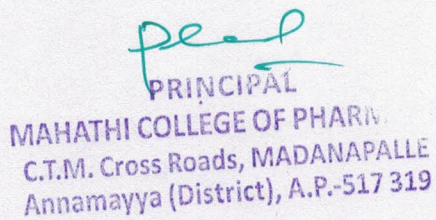 PRINCIPAL
MAHATHI COLLEGE OF
C.T.M. Cross Roads, MADANAPALLE
Annamayya (District), A.P.-517 319